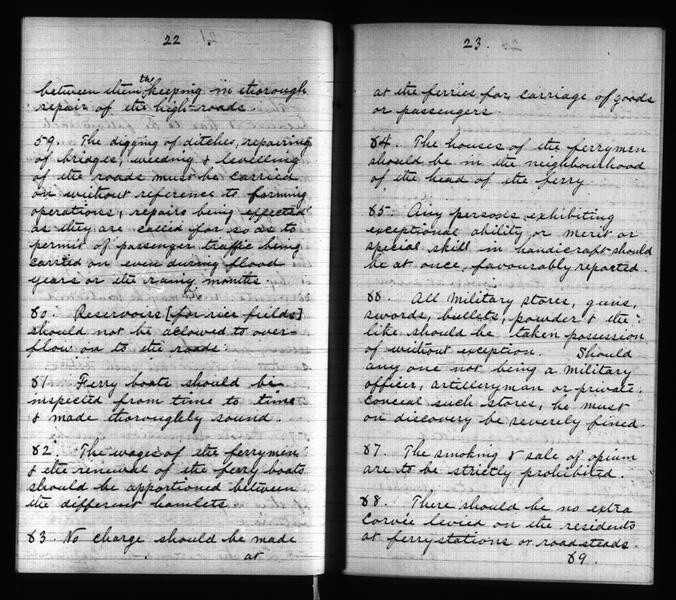 22
between them the keeping in thorough
repair of the high-roads.
59. The digging of ditches, repairing
of bridges, weeding & levelling
of the roads must be carried
on without reference to farming
operations; repairs being effected
as they are called for so as to
permit of passenger traffic being
carried on even during flood
years or the rainy months.
60. Reservoirs [for rice fields]
should not be allowed to over-
flow on to the roads.
61. Ferry boats should be
inspected from time to time
& made thoroughly sound.
62. The wages of the ferrymen
& the renewal of the ferry boats
should be apportioned between
the different hamlets.
63. No charge should be made
at
23.
at the ferries for carriage of goods
or passengers.
64. The houses of the ferrymen
should be in the neighbourhood
of the head of the ferry
65. Any persons exhibiting
exceptional ability or merit or
special skill in handicraft should
be at once favourably reported.
66. All military stores, guns,
swords, bullets, powder & the
like should be taken possession
of without exception. Should
any one not being a military
officer, artilleryman or private,
conceal such stores, he must
on discovery be severely fined.
67. The smoking & sale of opium
are to be strictly prohibited.
68. There should be no extra
Corvée levied on the residents
at ferry stations or roadsteads.
69.